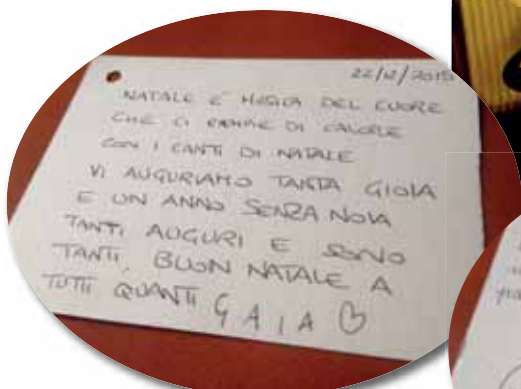 22/12/2015
NATALE È MUSICA DEL CUORE
CHE CI RIEMPIE DI CALORE
CON I CANTI DI NATALE
VI AUGURIAMO TANTA GIOIA
E UN ANNO SENZA NOIA
TANTI AUGURI E SONO
TANTI, BUON NATALE A
TUTTI QUANTI GAIA